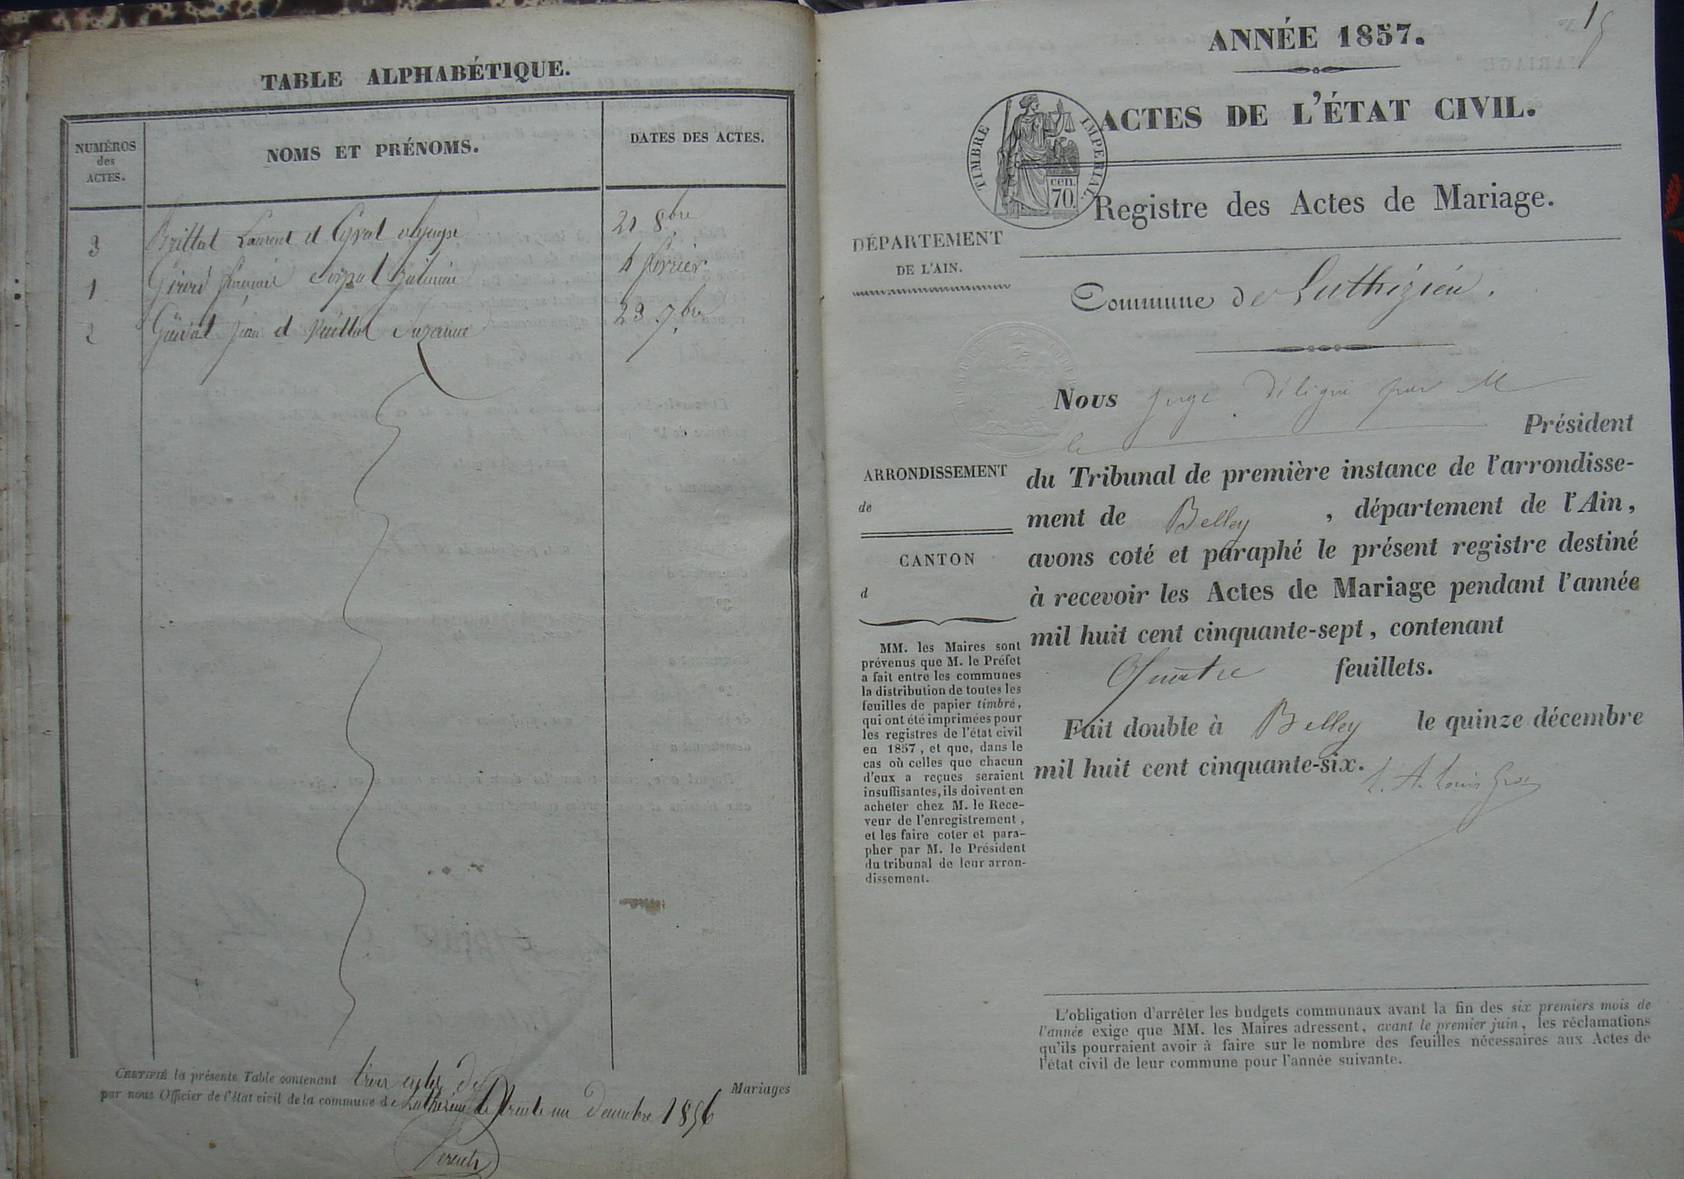 TABLE ALPHABÉTIQUE.
NUMÉROS
des
ACTES.
NOMS ET PRÉNOMS.
DATES DES ACTES.
3 Brillat Laurent et 21 8bre
1 4 février
2 Jean et Suzanne 23 7bre
CERTIFIÉ la présente Table contenant trois actes de Mariages
par nous Officier de l'état civil de la commune de Luthézieu le trente un décembre 1856
15
ANNÉE 1857.
ACTES DE L'ÉTAT CIVIL.
TIMBRE IMPÉRIAL
cen.
70.
Registre des Actes de Mariage.
DÉPARTEMENT
DE L'AIN.
Commune de Luthézieu.
Nous juge délégué par M
le Président
ARRONDISSEMENT
de
CANTON
d
du Tribunal de première instance de l'arrondisse-
ment de Belley , département de l'Ain,
avons coté et paraphé le présent registre destiné
à recevoir les Actes de Mariage pendant l'année
mil huit cent cinquante-sept, contenant
Quatre feuillets.
Fait double à Belley le quinze décembre
mil huit cent cinquante-six.
MM. les Maires sont
prévenus que M. le Préfet
a fait entre les communes
la distribution de toutes les
feuilles de papier timbré,
qui ont été imprimées pour
les registres de l'état civil
en 1857, et que, dans le
cas où celles que chacun
d'eux a reçues seraient
insuffisantes, ils doivent en
acheter chez M. le Rece-
veur de l'enregistrement,
et les faire coter et para-
pher par M. le Président
du tribunal de leur arron-
dissement.
L'obligation d'arrêter les budgets communaux avant la fin des six premiers mois de
l'année exige que MM. les Maires adressent, avant le premier juin, les réclamations
qu'ils pourraient avoir à faire sur le nombre des feuilles nécessaires aux Actes de
l'état civil de leur commune pour l'année suivante.